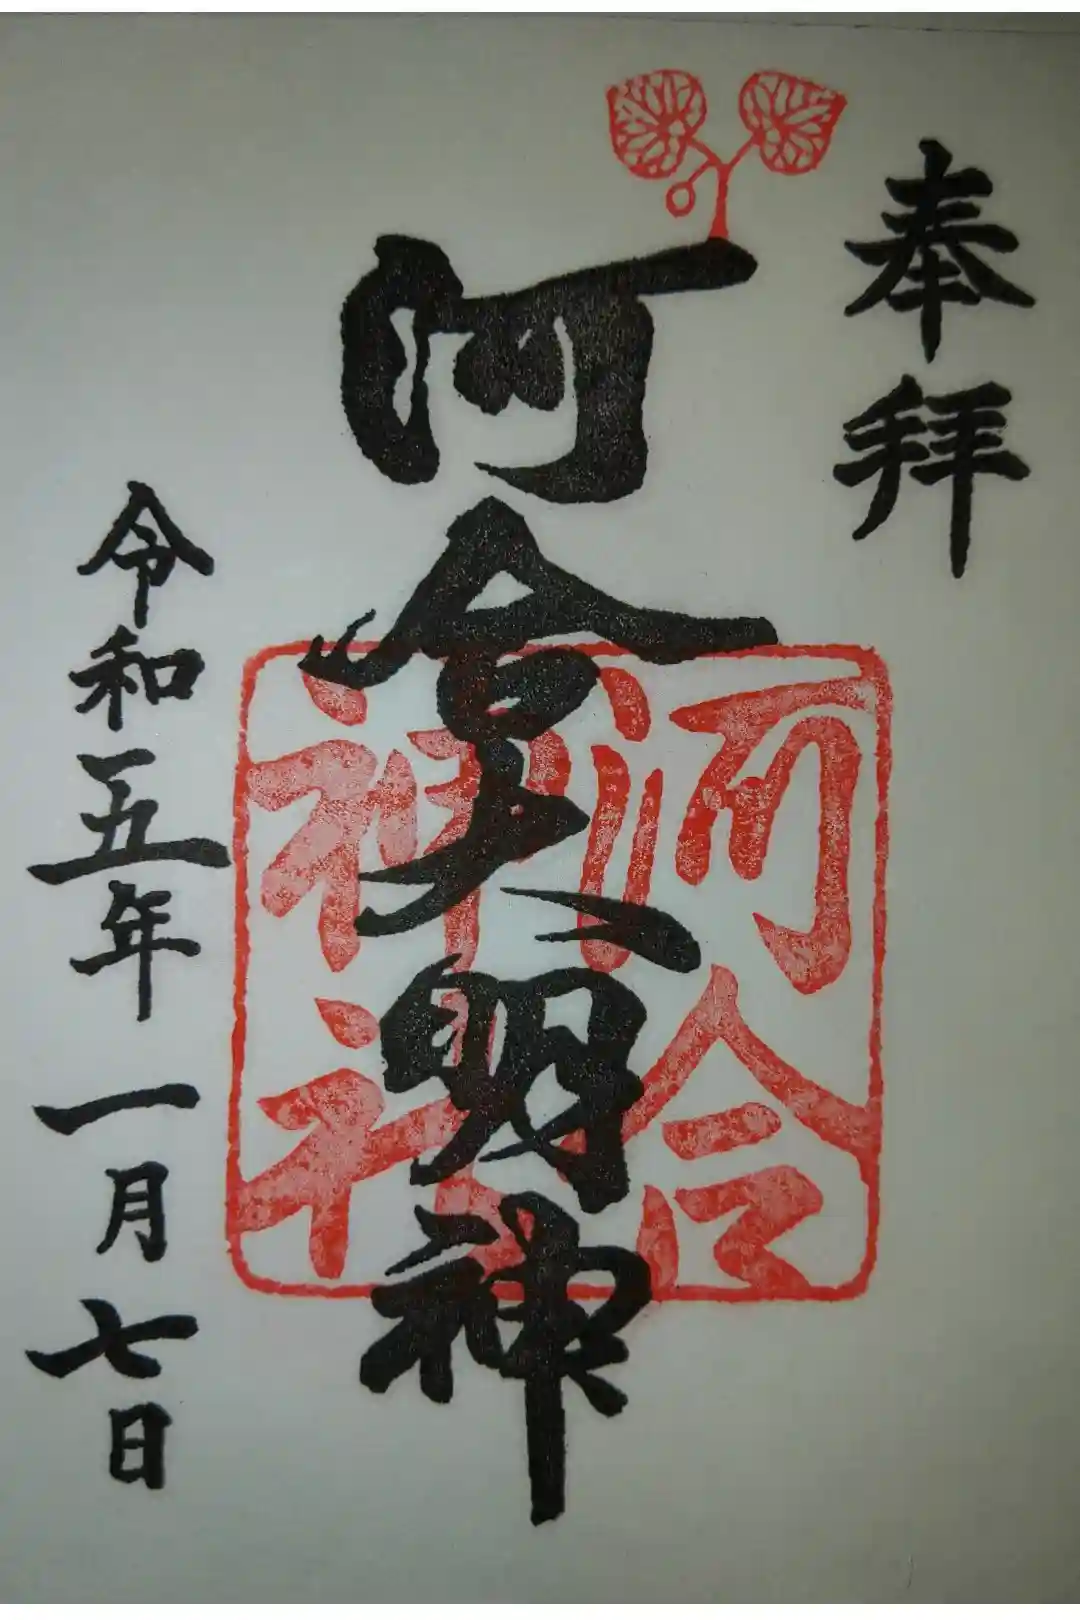 奉拝
河合大明神
河合
神社
令和五年一月七日